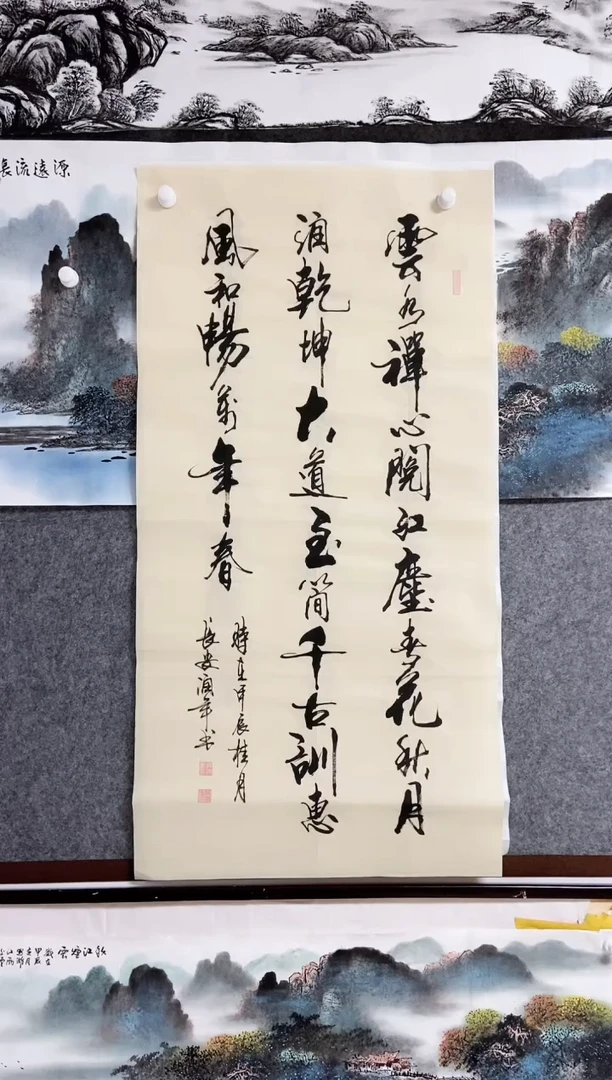 雲水禪心脫紅塵春花秋月
潤乾坤大道至簡千古訓惠
風和暢萬年春
時在甲辰桂月
長安潤年书
源遠流長
秋江煙雲